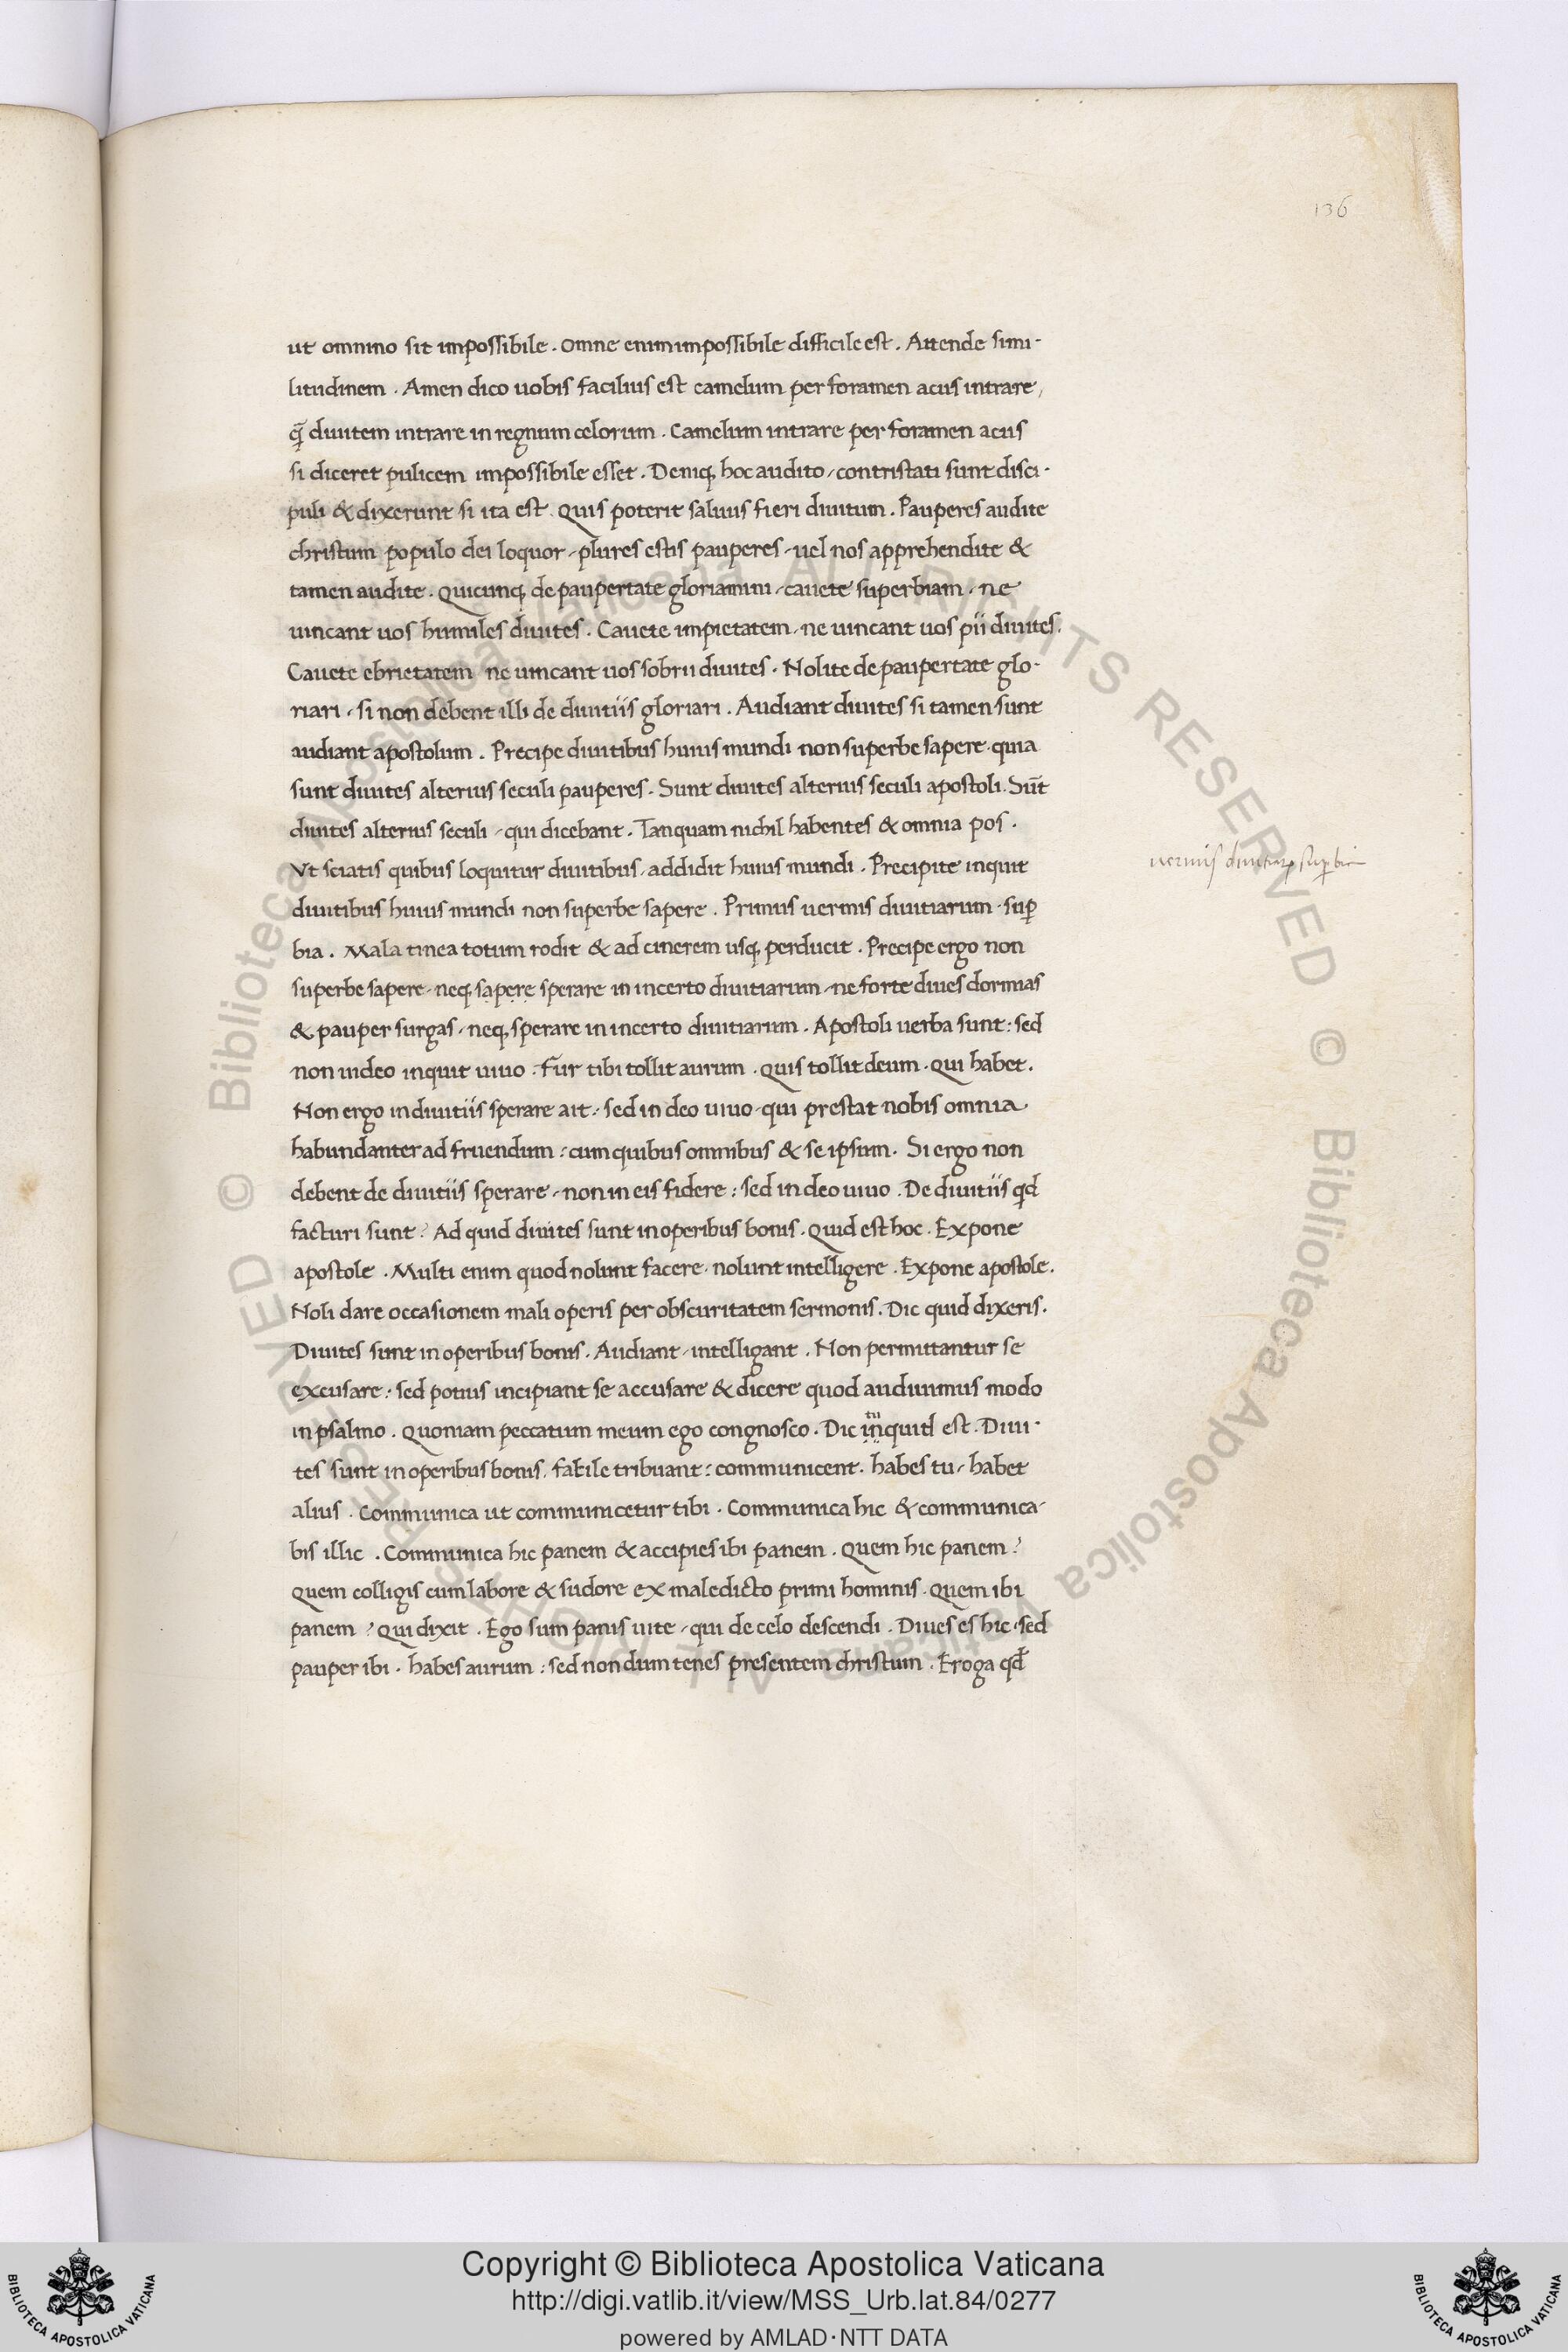 136
ut omnino sit impossibile . Omne enim impossibile difficile est . Attende simi-
litudinem . Amen dico uobis facilius est camelum per foramen acus intrare,
q̄ diuitem intrare in regnum celorum . Camelum intrare per foramen acus
si diceret pulicem impossibile esset . Deniq; hoc audito, contristati sunt disci-
puli & dixerunt si ita est . Quis poterit saluus fieri diuitum . Pauperes audite
christum populo dei loquor, plures estis pauperes, uel nos apprehendite &
tamen audite . Quicunq; de paupertate gloriamini, cauete superbiam, ne
uincant uos humiles diuites . Cauete impietatem, ne uincant uos pii diuites.
Cauete ebrietatem ne uincant uos sobrii diuites . Nolite de paupertate glo-
riari, si non debent illi de diuitiis gloriari . Audiant diuites si tamen sunt
audiant apostolum . Precipe diuitibus huius mundi non superbe sapere, quia
sunt diuites alterius seculi pauperes . Sunt diuites alterius seculi apostoli . Sūt
diuites alterius seculi, qui dicebant . Tanquam nichil habentes & omnia pos .
Vt sciatis quibus loquitur diuitibus, addidit huius mundi . Precipite inquit
uermis diuitiaꝝ suꝑbia
diuitibus huius mundi non superbe sapere . Primus uermis diuitiarum, suꝑ
bia . Mala tinea totum rodit & ad cinerem usq; perducit . Precipe ergo non
superbe sapere, neq; sapere sperare in incerto diuitiarum, ne forte diues dormias
& pauper surgas, neq; sperare in incerto diuitiarum . Apostoli uerba sunt : sed
non in deo inquit uiuo : Fur tibi tollit aurum . Quis tollit deum . Qui habet .
Non ergo in diuitiis sperare ait, sed in deo uiuo, qui prestat nobis omnia
habundanter ad fruendum : cum quibus omnibus & se ipsum . Si ergo non
debent de diuitiis sperare, non in eis fidere : sed in deo uiuo . De diuitiis qd
facturi sunt ? Ad quid diuites sunt in operibus bonis . Quid est hoc . Expone
apostole . Multi enim quod nolunt facere, nolunt intelligere . Expone apostole .
Noli dare occasionem mali operis per obscuritatem sermonis . Dic quid dixeris .
Diuites sunt in operibus bonis . Audiant, intelligant . Non permittantur se
excusare : sed potius incipiant se accusare & dicere quod audiuimus modo
in psalmo . Quoniam peccatum meum ego congnosco . Dic quid est . Diui-
tes sunt in operibus bonis, facile tribuant : communicent . habes tu, habet
alius . Communica ut communicetur tibi . Communica hic & communica-
bis illic . Communica hic panem & accipies ibi panem . Quem hic panem ?
Quem colligis cum labore & sudore ex maledicto primi hominis . Quem ibi
panem ? Qui dixit . Ego sum panis uite, qui de celo descendi . Diues es hic, sed
pauper ibi . habes aurum : sed nondum tenes presentem christum . Eroga qd̄
© Biblioteca Apostolica Vaticana ALL RIGHTS RESERVED
© Biblioteca Apostolica Vaticana ALL RIGHTS RESERVED
Copyright © Biblioteca Apostolica Vaticana
http://digi.vatlib.it/view/MSS_Urb.lat.84/0277
powered by AMLAD·NTT DATA
BIBLIOTECA APOSTOLICA VATICANA
BIBLIOTECA APOSTOLICA VATICANA